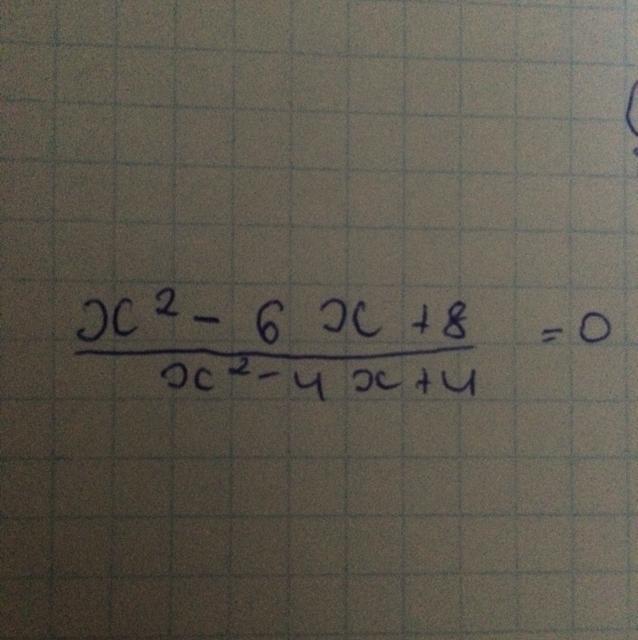 x² - 6x + 8 = 0
x² - 4x + 4